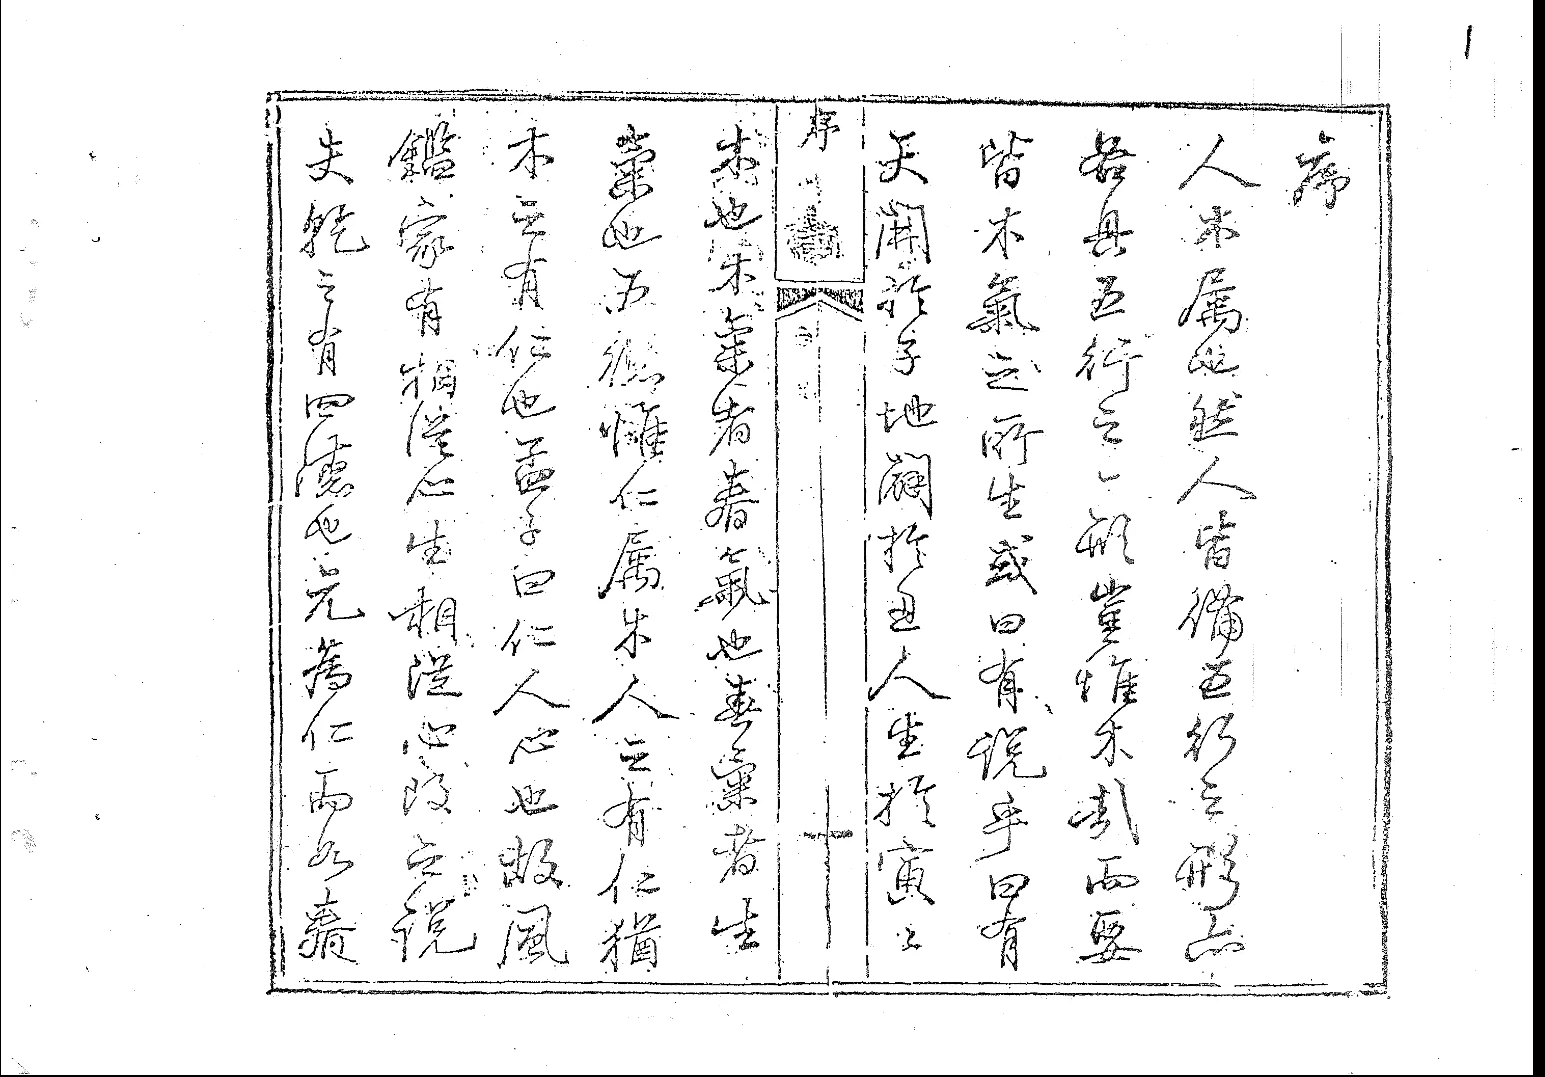 1
序
人木屬也然人皆備五行之形亦
各具五行之一形豈惟木哉而要
皆木氣之所生或曰有說乎曰有
天開於子地闢於丑人生於寅寅
序
木也木氣者春氣也春稟者生
稟也五德惟仁屬木人之有仁猶
木之有仁也孟子曰仁人心也故風
鑑家有相從心生相從心改之說
夫乾之有四德也元為仁而如春